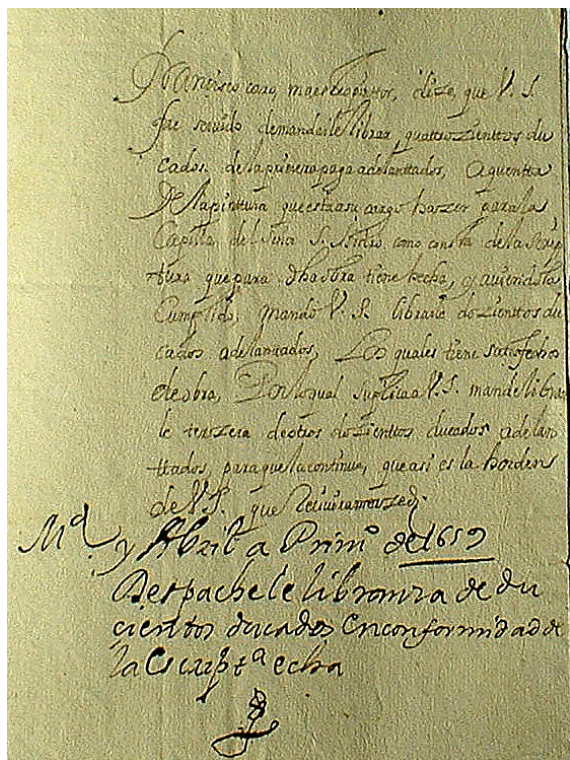 Francisco caro, maestro pintor, dize, que V. S.
fue seruido demandarle librar, quattrozienttos du
cados. de la primera paga adelanttados, a quentta
De la pintura que esta a su cargo hazer para la
Capilla del Sinor S. Isidro como consta de la scrip
tura que para dha obra tiene hecha, y auiendola
Cumplido, mando V. S. librarle dozienttos du
cados adelantados, Los quales tiene satisfechos
de obra, Por lo qual suplica a V. S. mande librar
le terszera de otros dozienttos ducados adelan
ttados, para que la continue, que asi es la horden
de V. S. que Reciuira mrzed.
Md. y Abril a Primo de 1659
Despachele libranza de du
cientos ducados En conformidad de
la Escripta echa